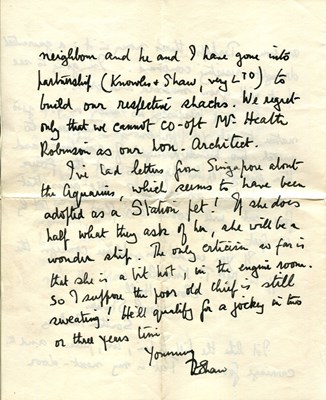 neighbour and he and I have gone into
partnership (Knowles & Shaw, very LTD) to
build our respective shacks. We regret
only that we cannot co-opt Mr. Heath
Robinson as our hon. Architect.
I've had letters from Singapore about
the Aquarius, which seems to have been
adopted as a Station pet! If she does
half what they ask of her, she will be a
wonder ship. The only criticism so far is
that she is a bit hot, in the engine room.
So I suppose the poor old chief is still
sweating! He'll qualify for a jockey in two
or three years time
Yours
TEShaw